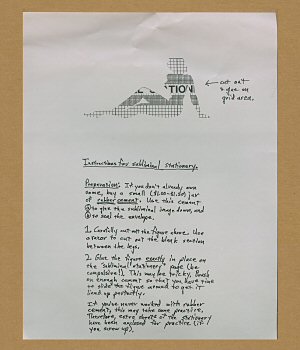 TION
← cut out
& glue on
grid area.
Instructions for subliminal stationery.
Preparation: If you don't already own
some, buy a small ($1.00-$1.50) jar
of rubber cement. Use this cement
to glue the subliminal image down, and
to seal the envelope.
1. Carefully cut out the figure above. Use
a razor to cut out the black section
between the legs.
2. Glue the figure exactly in place on
the "subliminal stationery" page (be
compulsive!). This may be tricky. Brush
on enough cement so that you have time
to slide the figure around to get it
lined up perfectly.
If you've never worked with rubber
cement, this may take some practice.
Therefore, extra sheets of the stationery
have been enclosed for practice (if
you screw up).